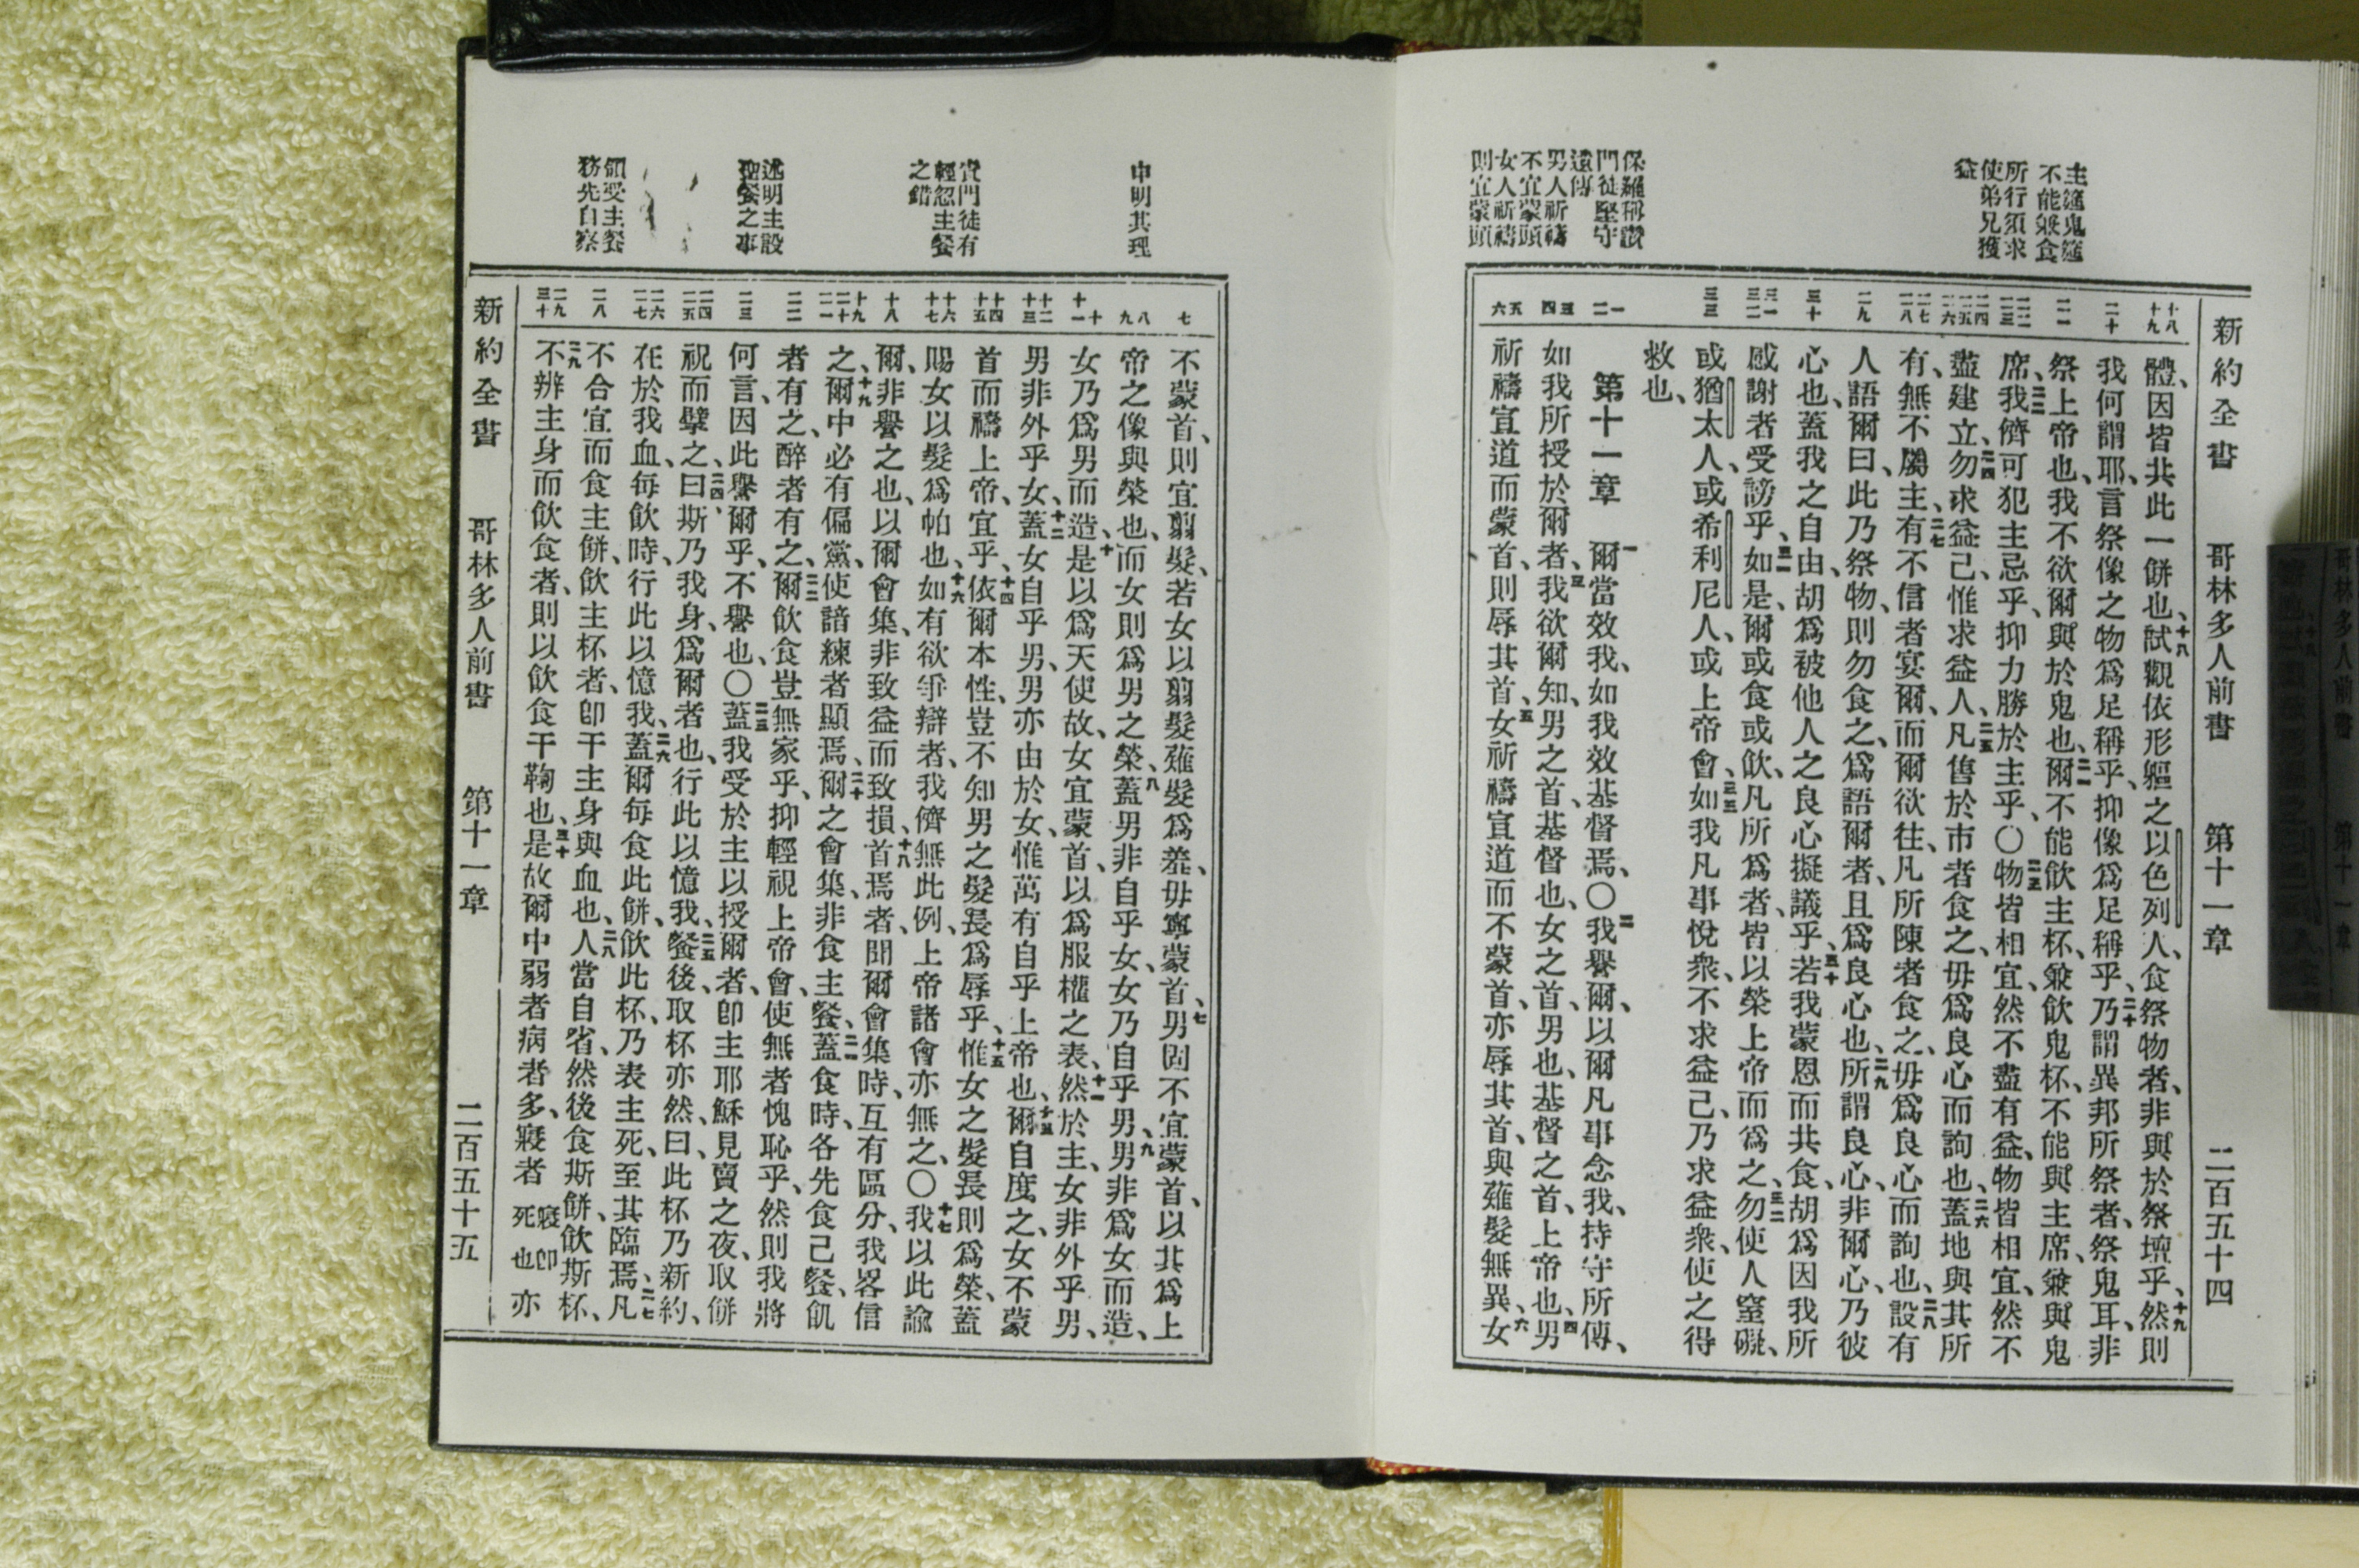 新約全書 哥林多人前書 第十一章 二百五十四
主筵鬼筵
不能兼食
所行須求
使弟兄獲
益
保羅稱讚
門徒堅守
遺傳
男人祈禱
不宜蒙頭
女人祈禱
則宜蒙頭
十八 十九
二十
二一
二二 二三
二四 二五 二六
二七 二八
二九
三十
三一 三二
三三
一 二
三 四
五 六
體、因皆共此一餅也、十八試觀依形軀之以色列人、食祭物者、非與於祭壇乎、十九然則
我何謂耶、言祭像之物爲足稱乎、抑像爲足稱乎、二十乃謂異邦所祭者、祭鬼耳、非
祭上帝也、我不欲爾與於鬼也、二一爾不能飲主杯、兼飲鬼杯、不能與主席、兼與鬼
席、二二我儕可犯主忌乎、抑力勝於主乎、〇二三物皆相宜、然不盡有益、物皆相宜、然不
盡建立、二四勿求益己、惟求益人、二五凡售於市者食之、毋爲良心而詢也、二六蓋地與其所
有、無不屬主、二七有不信者宴爾、而爾欲往、凡所陳者食之、毋爲良心而詢也、二八設有
人語爾曰、此乃祭物、則勿食之、爲語爾者、且爲良心也、二九所謂良心、非爾心、乃彼
心也、蓋我之自由、胡爲被他人之良心擬議乎、三十若我蒙恩而共食、胡爲因我所
感謝者受謗乎、三一如是、爾或食或飲、凡所爲者、皆以榮上帝而爲之、三二勿使人窒礙、
或猶太人、或希利尼人、或上帝會、三三如我凡事悅衆、不求益己、乃求益衆、使之得
救也、
第十一章 一爾當效我、如我效基督焉、〇二我譽爾、以爾凡事念我、持守所傳、
如我所授於爾者、三我欲爾知、男之首、基督也、女之首、男也、基督之首、上帝也、四男
祈禱宣道而蒙首、則辱其首、五女祈禱宣道而不蒙首、亦辱其首、與薙髮無異、六女
申明其理
責門徒有
輕忽主餐
之錯
述明主設
聖餐之事
領受主餐
務先自察
七
八 九
十 十一
十二 十三
十四 十五
十六 十七
十八
十九 二十 二一
二二
二三
二四 二五
二六 二七
二八
二九 三十
不蒙首、則宜翦髮、若女以翦髮薙髮爲羞、毋寧蒙首、七男固不宜蒙首、以其爲上
帝之像與榮也、而女則爲男之榮、八蓋男非自乎女、女乃自乎男、九男非爲女而造、
女乃爲男而造、十是以爲天使故、女宜蒙首、以爲服權之表、十一然於主、女非外乎男、
男非外乎女、十二蓋女自乎男、男亦由於女、惟萬有自乎上帝也、十三爾自度之、女不蒙
首而禱上帝、宜乎、十四依爾本性、豈不知男之髮長爲辱乎、十五惟女之髮長則爲榮、蓋
賜女以髮爲帕也、十六如有欲爭辯者、我儕無此例、上帝諸會亦無之、〇十七我以此諭
爾、非譽之也、以爾會集、非致益而致損、十八首焉者、聞爾會集時、互有區分、我畧信
之、十九爾中必有偏黨、使諳練者顯焉、二十爾之會集、非食主餐、二一蓋食時、各先食己餐、飢
者有之、醉者有之、二二爾飲食豈無家乎、抑輕視上帝會、使無者愧恥乎、然則我將
何言、因此譽爾乎、不譽也、〇二三蓋我受於主以授爾者、卽主耶穌見賣之夜、取餅
祝而擘之、二四曰、斯乃我身、爲爾者也、行此以憶我、二五餐後、取杯亦然、曰、此杯乃新約、
在於我血、每飲時、行此以憶我、二六蓋爾每食此餅、飲此杯、乃表主死、至其臨焉、二七凡
不合宜而食主餅、飲主杯者、卽干主身與血也、二八人當自省、然後食斯餅、飲斯杯、
二九不辨主身而飲食者、則以飲食干鞫也、三十是故爾中弱者病者多、寢者寢卽死也亦
新約全書 哥林多人前書 第十一章 二百五十五